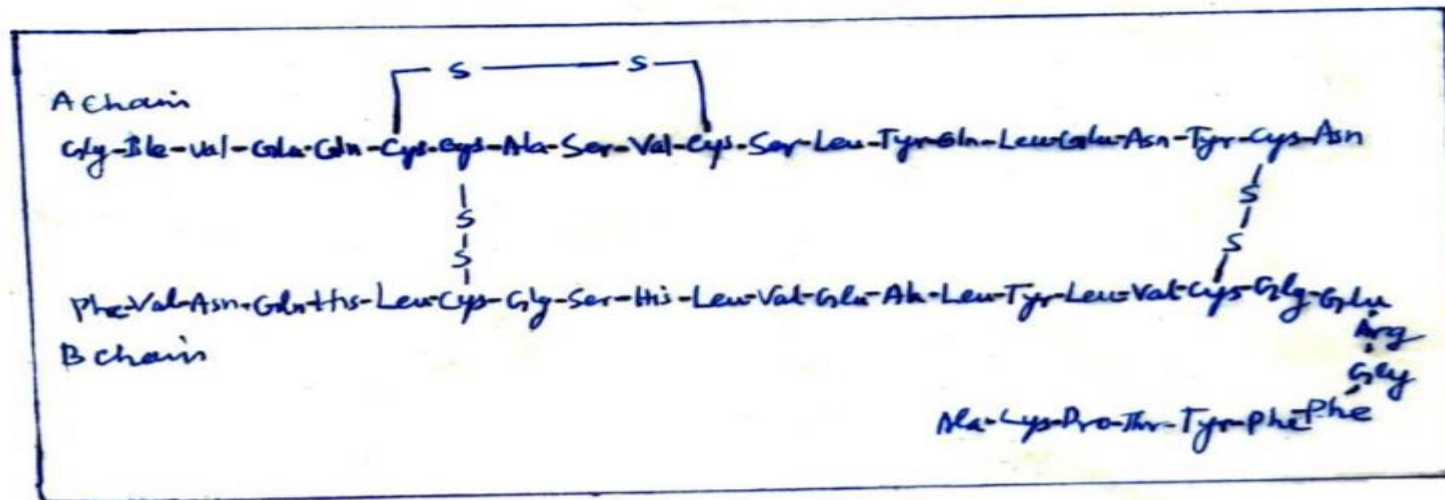 S S
A Chain
Gly-Ile-Val-Glu-Gln-Cys-Cys-Ala-Ser-Val-Cys-Ser-Leu-Tyr-Gln-Leu-Glu-Asn-Tyr-Cys-Asn
S S
S S
Phe-Val-Asn-Gln-His-Leu-Cys-Gly-Ser-His-Leu-Val-Glu-Ala-Leu-Tyr-Leu-Val-Cys-Gly-Glu
B chain
Arg
Gly
Ala-Lys-Pro-Thr-Tyr-Phe-Phe